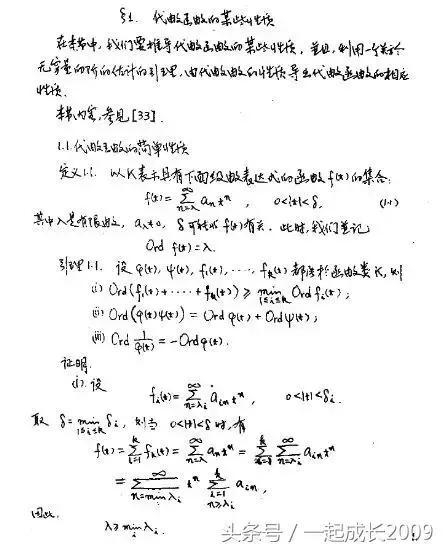 §1. 代数函数的某些性质
在本节中,我们要推导代数函数的某些性质,并且,利用一个关于
无穷量的阶的估计的引理,由代数函数的性质导出代数函数的相应
性质.
本节内容,参见[33].
1.1. 代数函数的简单性质
定义1.1. 以K表示具有下面级数表达式的函数f(z)的集合:
f(z) = ∑_{n=λ}^{∞} a_n z^n , 0<|z|<δ, (1.1)
其中λ是有限的数, a_λ≠0, δ可能与f(z)有关. 此时,我们总记
Ord f(z) = λ.
引理1.1. 设φ(z), ψ(z), f₁(z), ····, f_k(z)都属于函数类K, 则
(i) Ord(f₁(z)+····+f_k(z)) ≥ min_{1≤i≤k} Ord f_i(z);
(ii) Ord(φ(z)ψ(z)) = Ord φ(z) + Ord ψ(z);
(iii) Ord 1/φ(z) = -Ord φ(z).
证明.
(i). 设
f_i(z) = ∑_{n=λ_i}^{∞} a_{in} z^n , 0<|z|<δ_i.
取 δ = min_{1≤i≤k} δ_i, 则当 0<|z|<δ 时,有
f(z) = ∑_{i=1}^{k} f_i(z) = ∑_{n=λ}^{∞} a_n z^n = ∑_{i=1}^{k} ∑_{n=λ_i}^{∞} a_{in} z^n
= ∑_{n=min λ_i}^{∞} z^n ∑_{i=1, n≥λ_i}^{k} a_{in} ,
因此
λ ≥ min_i λ_i.
头条号 / 一起成长2009